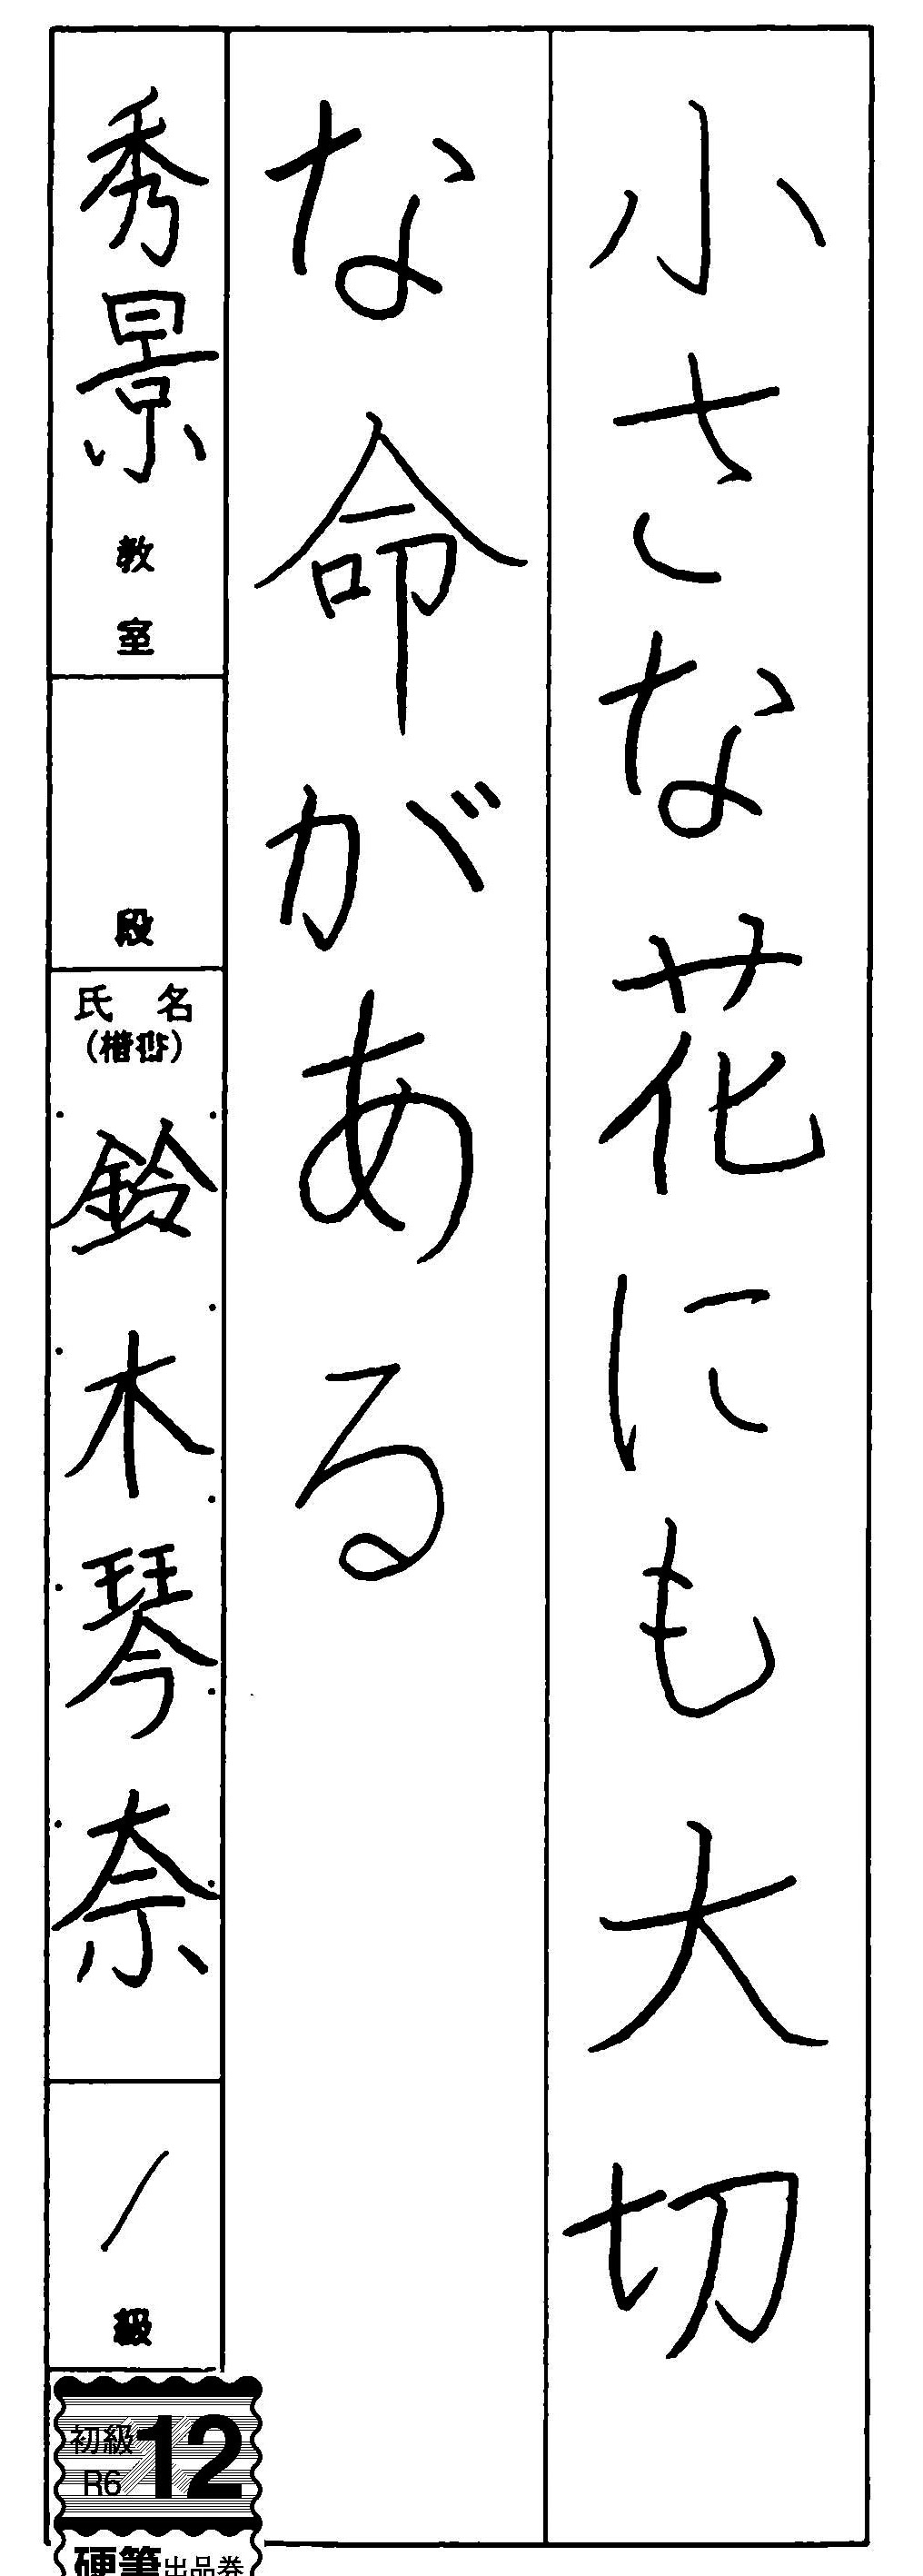 小さな花にも大切
な命がある
秀景教室
段
氏名
(楷書)
鈴木琴奈
／級
初級
R6
12
硬筆出品券